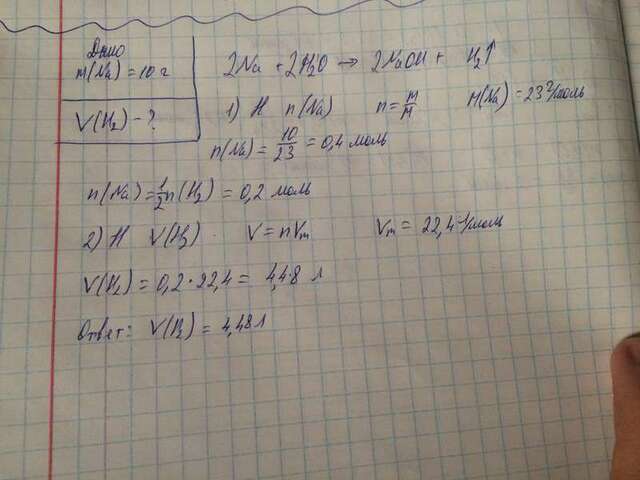 Дано
m(Na) = 10 г
V(H₂) - ?
2Na + 2H₂O → 2NaOH + H₂↑
1) Н n(Na) n = m/M M(Na) = 23 г/моль
n(Na) = 10/23 = 0,4 моль
n(Na) = 1/2 n(H₂) = 0,2 моль
2) Н V(H₂) V = nVm Vm = 22,4 л/моль
V(H₂) = 0,2 · 22,4 = 4,48 л
Ответ: V(H₂) = 4,48 л